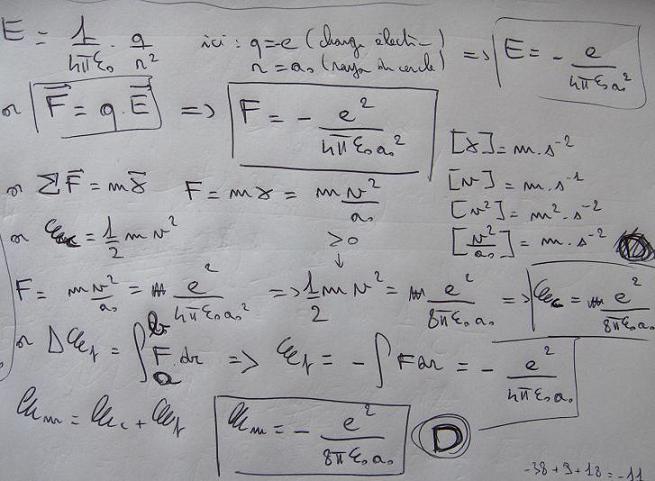 E = 1/(4πε₀) · q/r² ici : q=e (charge électron) r = a₀ (rayon du cercle) => E = - e/(4πε₀a₀²)
or F⃗ = q.E⃗ => F = - e²/(4πε₀a₀²)
[γ] = m.s⁻²
or ΣF⃗ = mγ⃗ F = mγ = m v²/a₀ [v] = m.s⁻¹
[v²] = m².s⁻²
or Ec = 1/2 m v² ≥0 ↓ [v²/a₀] = m.s⁻²
F = m v²/a₀ = e²/(4πε₀a₀²) => 1/2 m v² = e²/(8πε₀a₀) => Ec = e²/(8πε₀a₀)
or ΔEp = ∫ₐᵇ F.dr => Ep = -∫Fdr = - e²/(4πε₀a₀)
Em = Ec + Ep Em = - e²/(8πε₀a₀) D
-38+9+18=-11